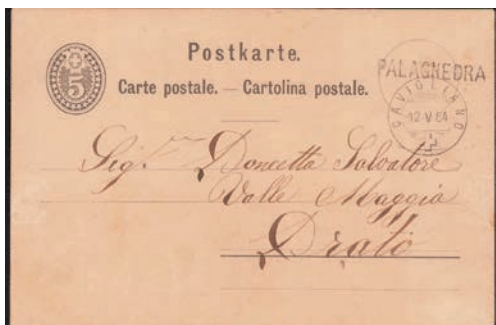 Postkarte.
5
Carte postale. — Cartolina postale.
PALAGNEDRA
CAVIGLIANO
12·V 84
Sig.r Doncetta Salvatore
Valle Maggia
Prato